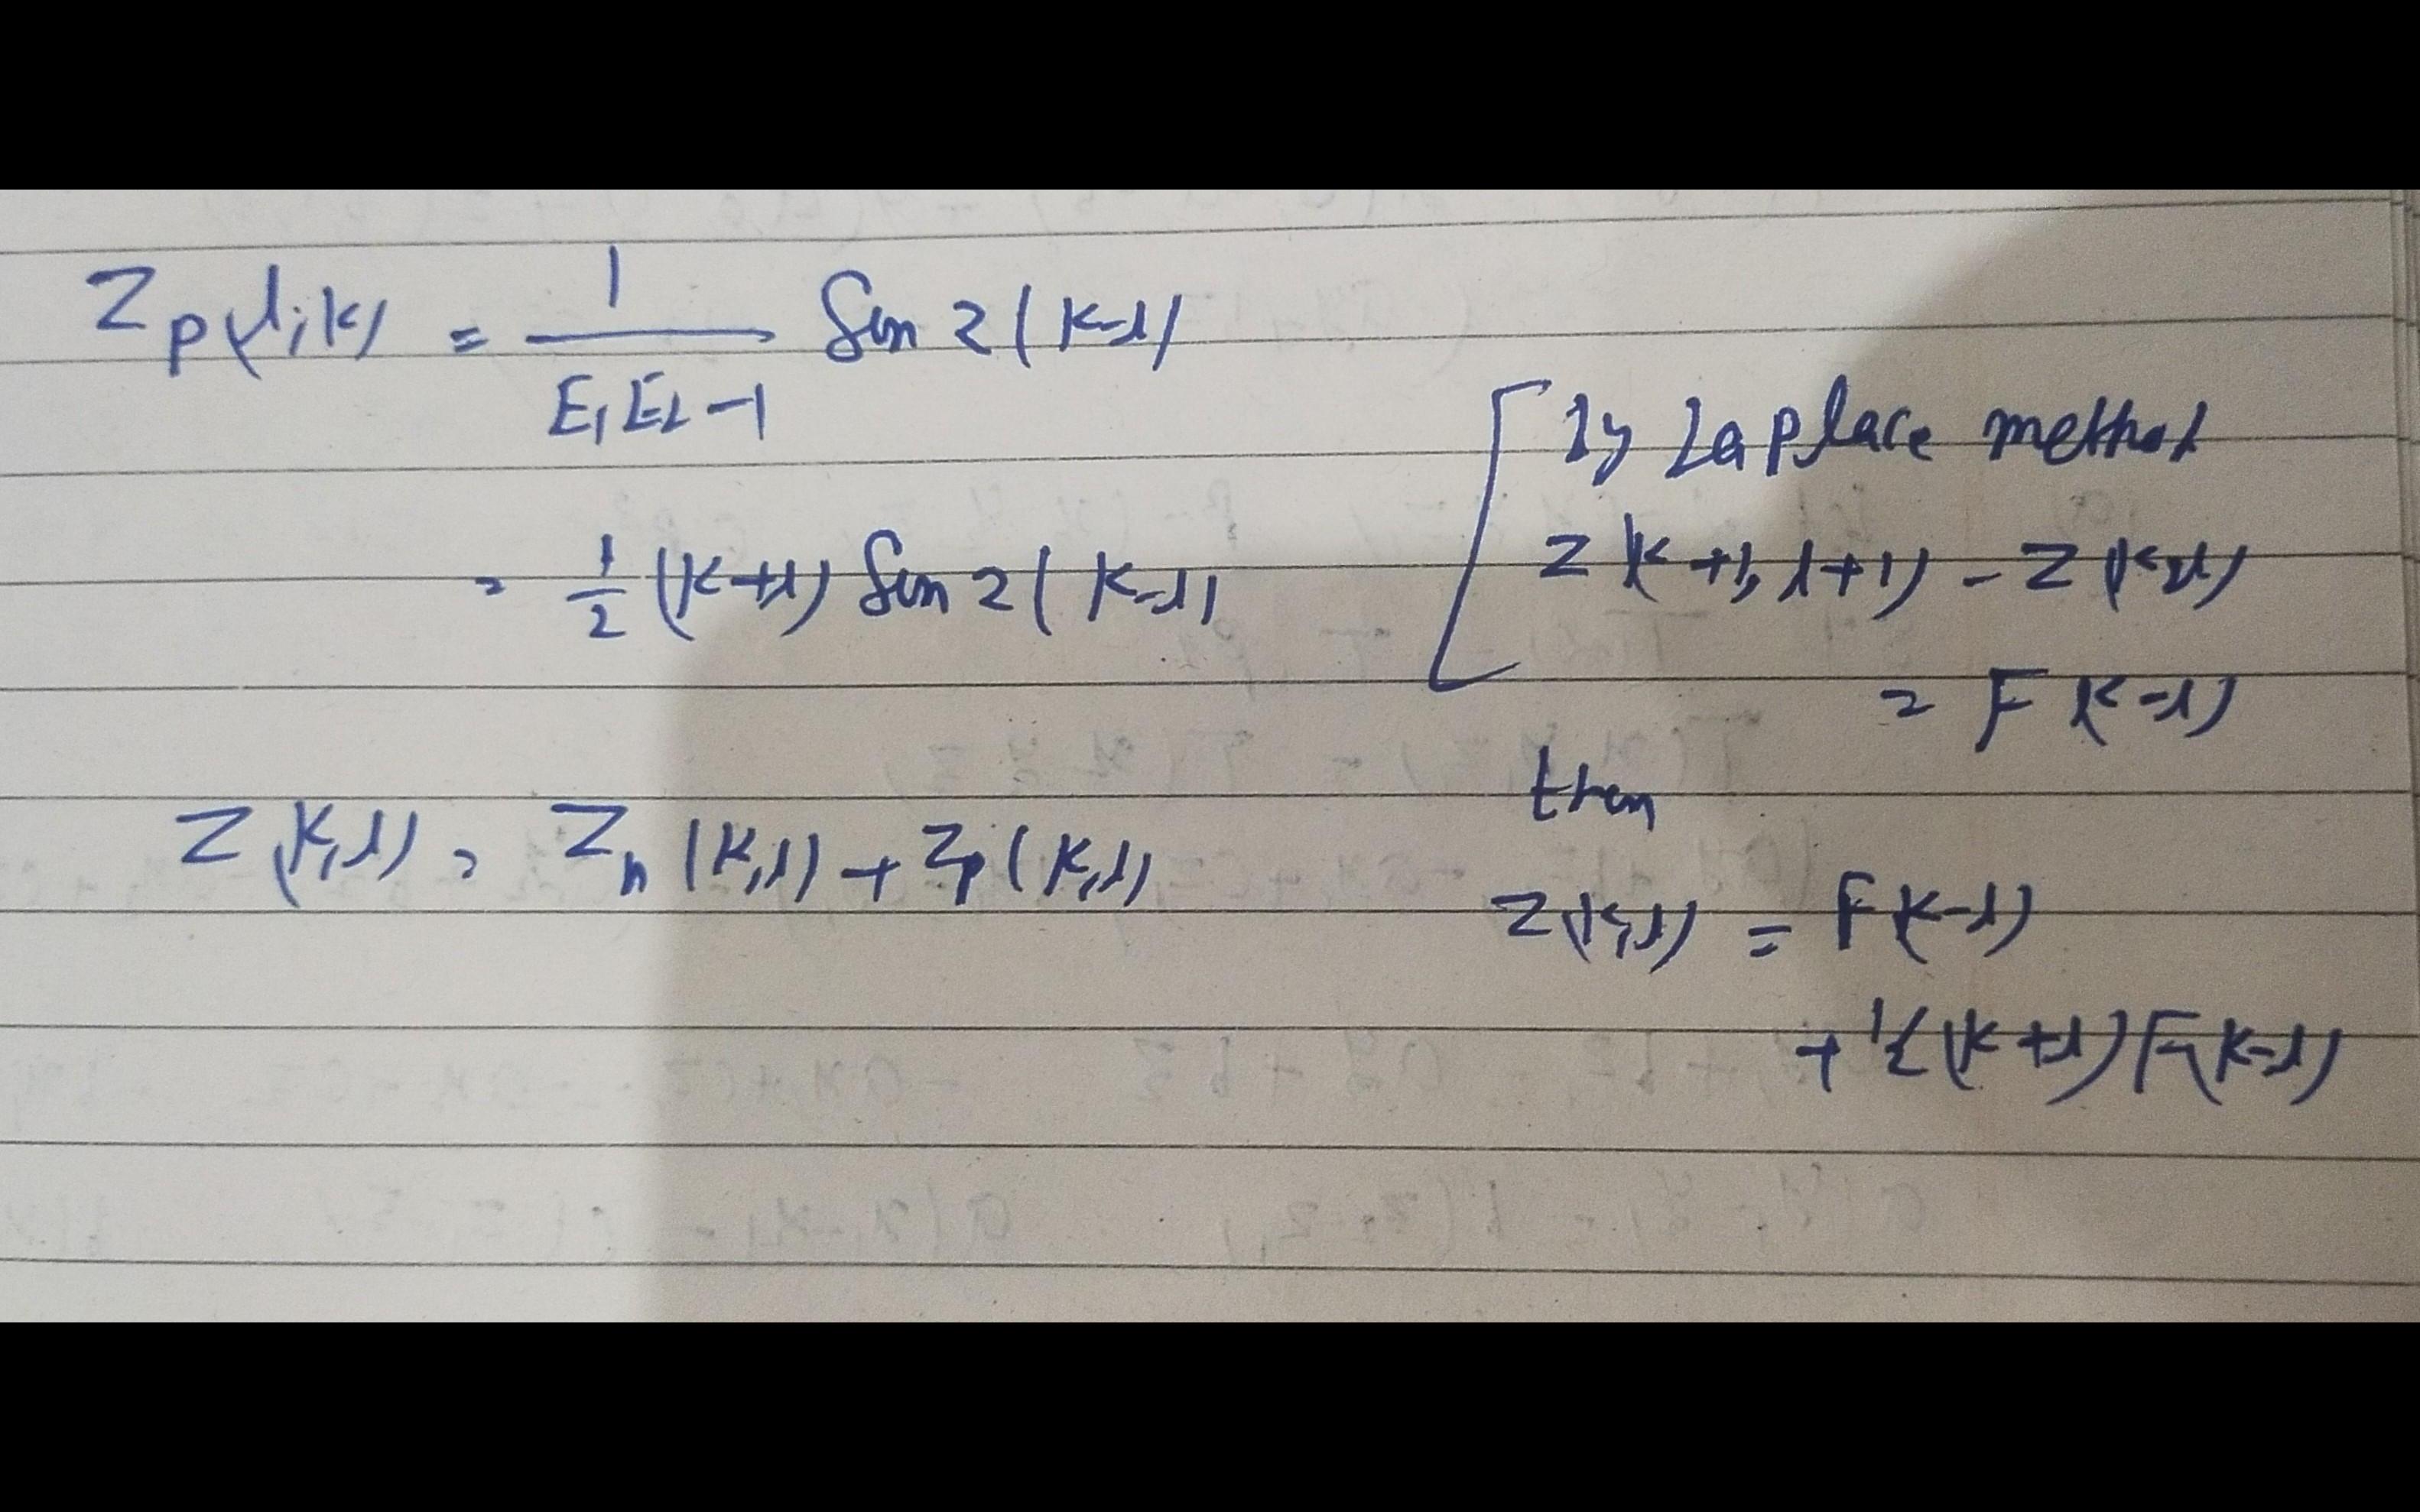 Z_p(l, k) = 1 / (E₁E₂ - 1) Sin 2(k-l)
= 1/2 (k+l) Sin 2(k-l)
Z(k,l) = Z_h(k,l) + Z_p(k,l)
by Laplace method
Z(k+1, l+1) - Z(k,l)
= F(k-l)
then
Z(k,l) = F(k-l)
+ 1/2 (k+l) F(k-l)